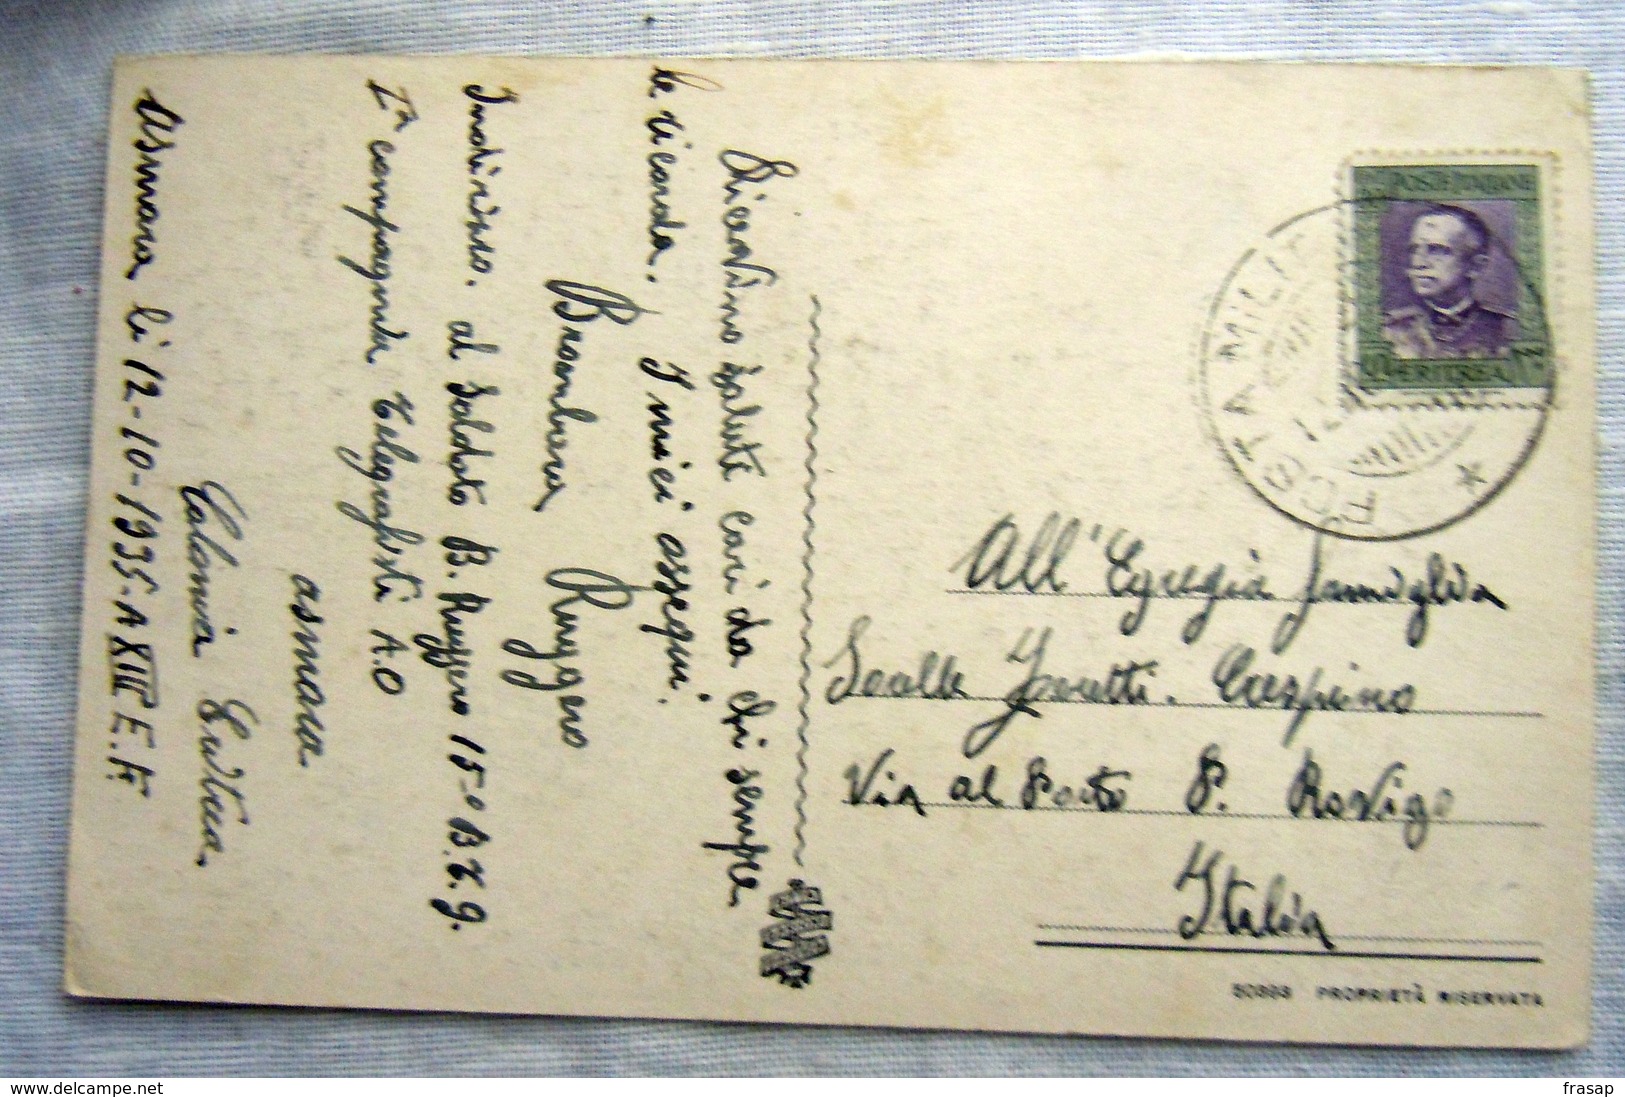 Ricevino saluti cari da chi sempre
le ricorda. I miei ossequi.
Brombrera Ruggero
Indirizzo. al Soldato B. Ruggero 15-º B.T.g.
Iª compagnia Telegrafisti A.O
asmara
Colonia Eritrea
asmara li 12-10-1935-A XIII E.F.
POSTE ITALIANE
ERITREA
POSTA MILIT
All'Egregia Famiglia
Scalla Crespino
Via al Porto P. Rovigo
Italia
PROPRIETÀ RISERVATA
delcampe.net
frasap